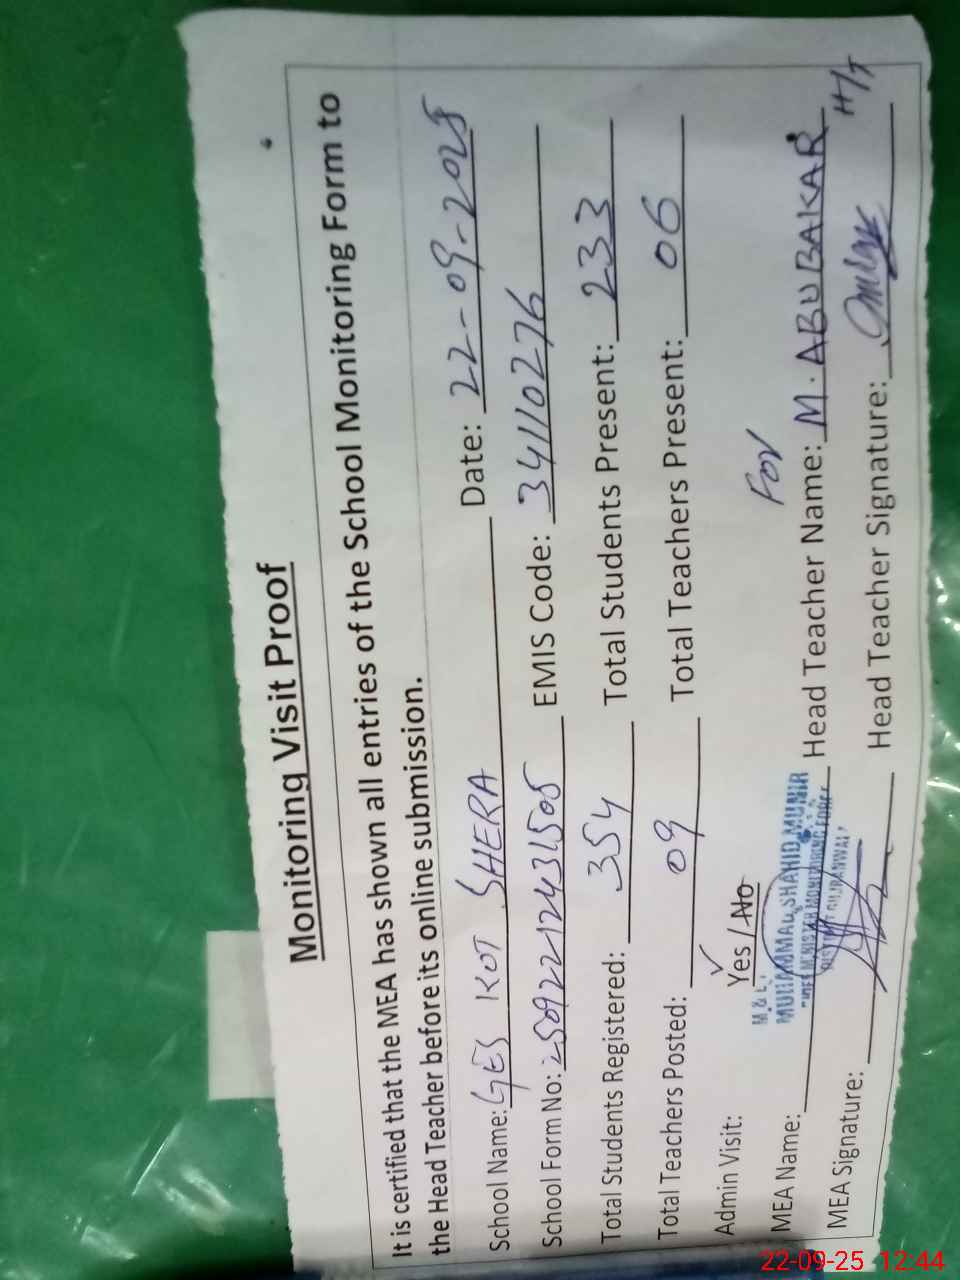 Monitoring Visit Proof
It is certified that the MEA has shown all entries of the School Monitoring Form to
the Head Teacher before its online submission.
School Name: GES KOT SHERA Date: 22-09-2025
School Form No: EMIS Code: 34110276
Total Students Registered: 354 Total Students Present: 233
Total Teachers Posted: 09 Total Teachers Present: 06
Admin Visit: Yes / No
For
M & E
MEA Name: MUHAMMAD SHAHID MUNIR Head Teacher Name: M. ABUBAKAR H/T
CHIEF MINISTER MONITORING FORCE
DISTRICT GUJRANWALA
MEA Signature: Head Teacher Signature:
22-09-25 12:44